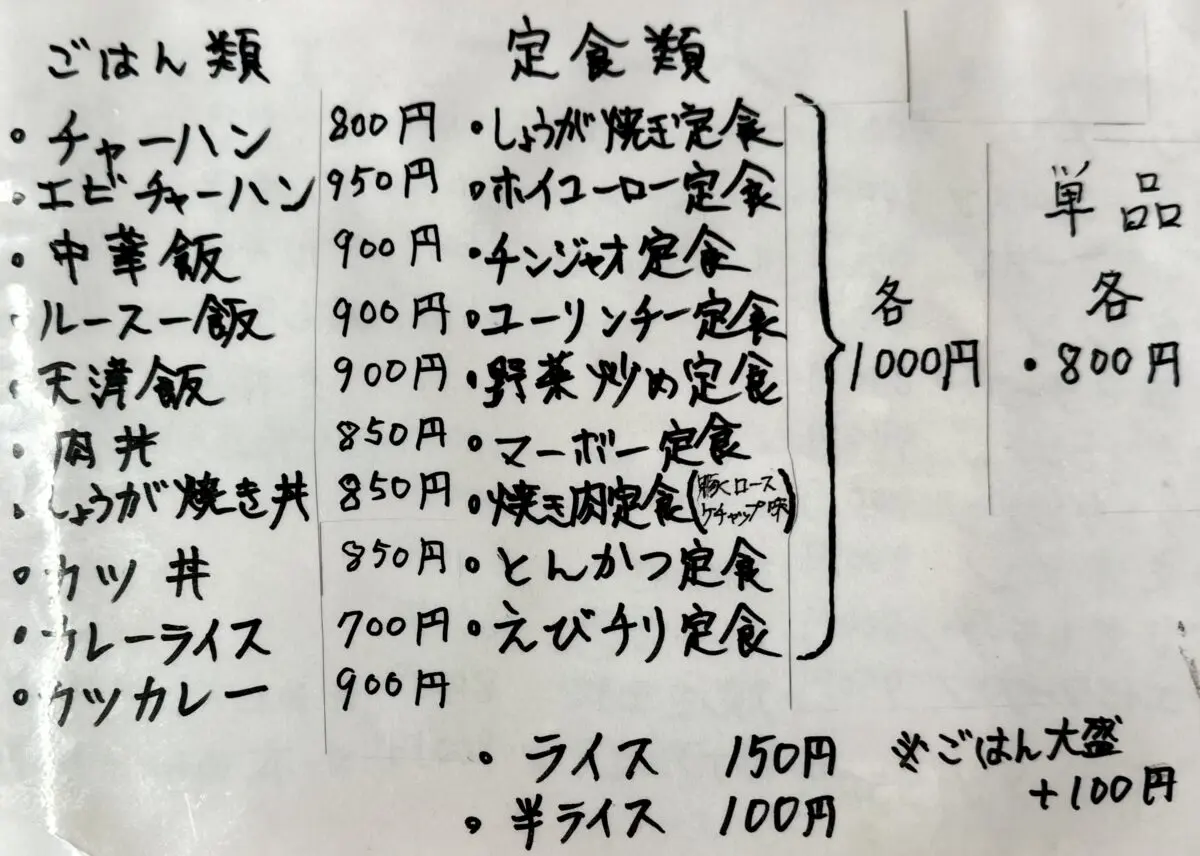 ごはん類
・チャーハン 800円
・エビチャーハン 950円
・中華飯 900円
・ルースー飯 900円
・天津飯 900円
・肉丼 850円
・しょうが焼き丼 850円
・カツ丼 850円
・カレーライス 700円
・カツカレー 900円
定食類
・しょうが焼き定食
・ホイコーロー定食
・チンジャオ定食
・ユーリンチー定食
・野菜炒め定食
・マーボー定食
・焼き肉定食(豚ロース
ケチャップ味)
・とんかつ定食
・えびチリ定食
各
1000円
単品
各
・800円
・ライス 150円
・半ライス 100円
※ごはん大盛
+100円